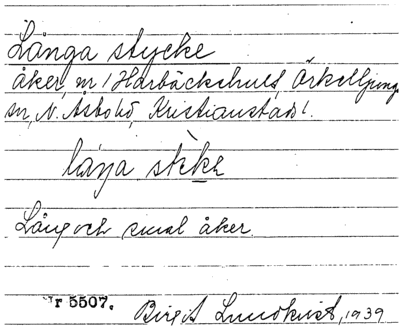 Långa stycke
åker, nr 1 Harbäckshult, Örkelljunga
sn, N. Åsbo hd, Kristianstads l.
låŋa stèkə
Lång och smal åker.
Nr 5507. Birgit Lundkvist, 1939